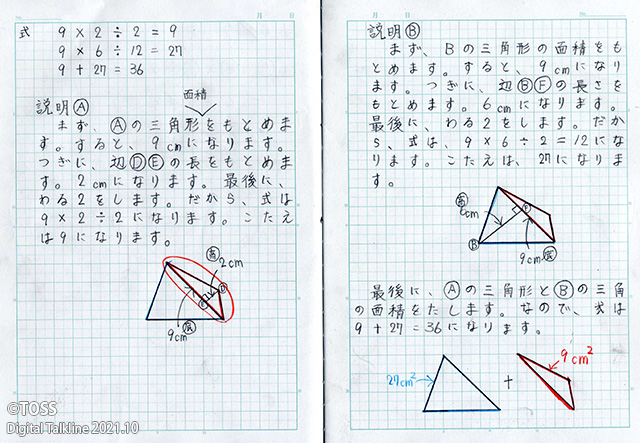 式 9×2÷2=9
9×6÷12=27
9+27=36
面積
説明Ⓐ
まず、Ⓐの三角形をもとめま
す。すると、9cmになります。
つぎに、辺ⒹⒺの長をもとめま
す。2cmになります。最後に、
わる2をします。だから、式は
9×2÷2になります。こたえ
は9になります。
高
2cm
D
E
9cm 底
月 日
説明Ⓑ
まず、Bの三角形の面積をも
とめます。すると、9cmになり
ます。つぎに、辺ⒷⒻの長さを
もとめます。6cmになります。
最後に、わる2をします。だか
ら、式は、9×6÷2=12にな
ります。こたえは、27になりま
す。
高
6cm
F
B
9cm 底
最後に、Ⓐの三角形とⒷの三角
の面積をたします。なので、式は
9+27=36になります。
27cm²
+
9cm²
月 日
©TOSS
Digital Talkline 2021.10